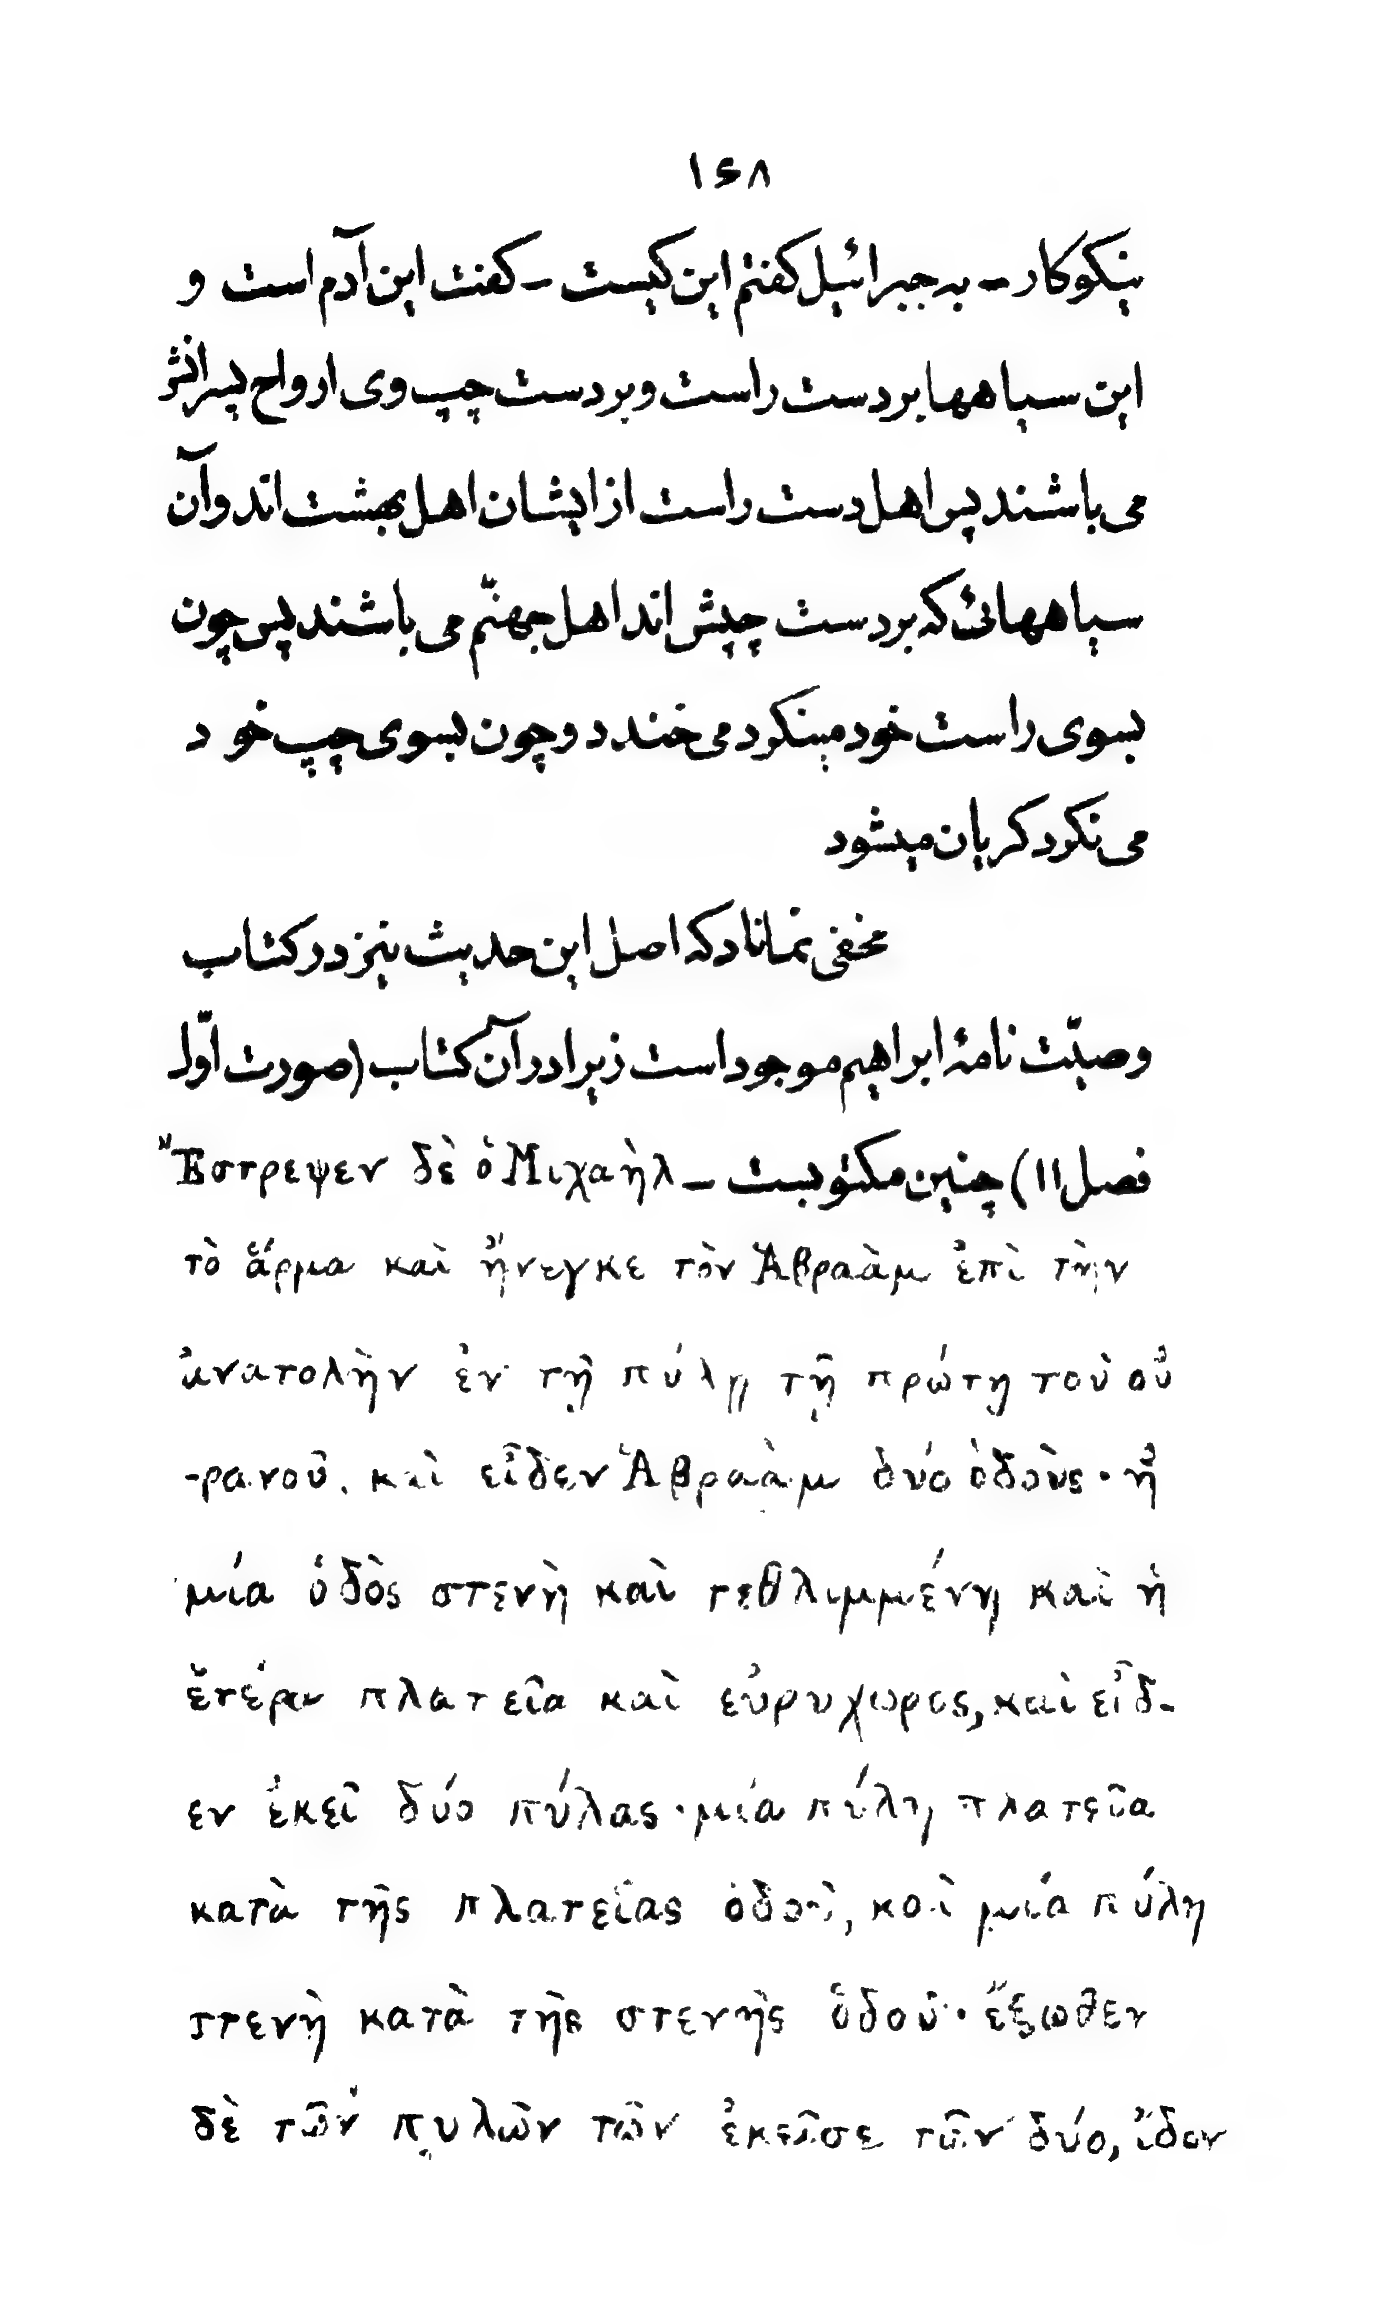 ۱۶۸
نیکوکار - به جبرائیل کفتم این کیست - کفت این آدم است و
این سیاهها بر دست راست و بر دست چپ وی ارواح پسرانش
می باشند پس اهل دست راست از ایشان اهل بهشت اند و آن
سیاههائی که بر دست چپش اند اهل جهنّم می باشند پس چون
بسوی راست خود مینکرد می خندد و چون بسوی چپ خود
می نکرد کریان میشود
مخفی نماناد که اصل این حدیث نیز در کتاب
وصیّت نامهٔ ابراهیم موجود است زیرا در آن کتاب (صورت اوّل
فصل ۱۱) چنین مکتوبست - Ἔστρεψεν δὲ ὁ Μιχαὴλ
τὸ ἅρμα καὶ ἤνεγκε τὸν Ἀβραὰμ ἐπὶ τὴν
ἀνατολὴν ἐν τῇ πύλῃ τῇ πρώτῃ τοῦ οὐ
-ρανοῦ. καὶ εἶδεν Ἀβραὰμ δύο ὁδοὺς· ἡ
μία ὁδὸς στενὴ καὶ τεθλιμμένη καὶ ἡ
ἑτέρα πλατεῖα καὶ εὐρυχωρος, καὶ εἶδ-
εν ἐκεῖ δύο πύλας· μία πύλη πλατεῖα
κατὰ τῆς πλατείας ὁδοῦ, καὶ μία πύλη
στενὴ κατὰ τῆς στενῆς ὁδοῦ· ἔξωθεν
δὲ τῶν πυλῶν τῶν ἐκεῖσε τῶν δύο, ἴδον